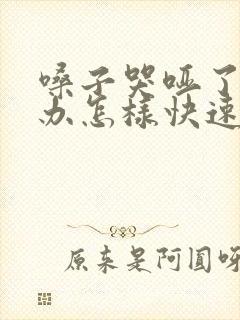 嗓子哭哑了
办怎样快速
原来是阿圆呀